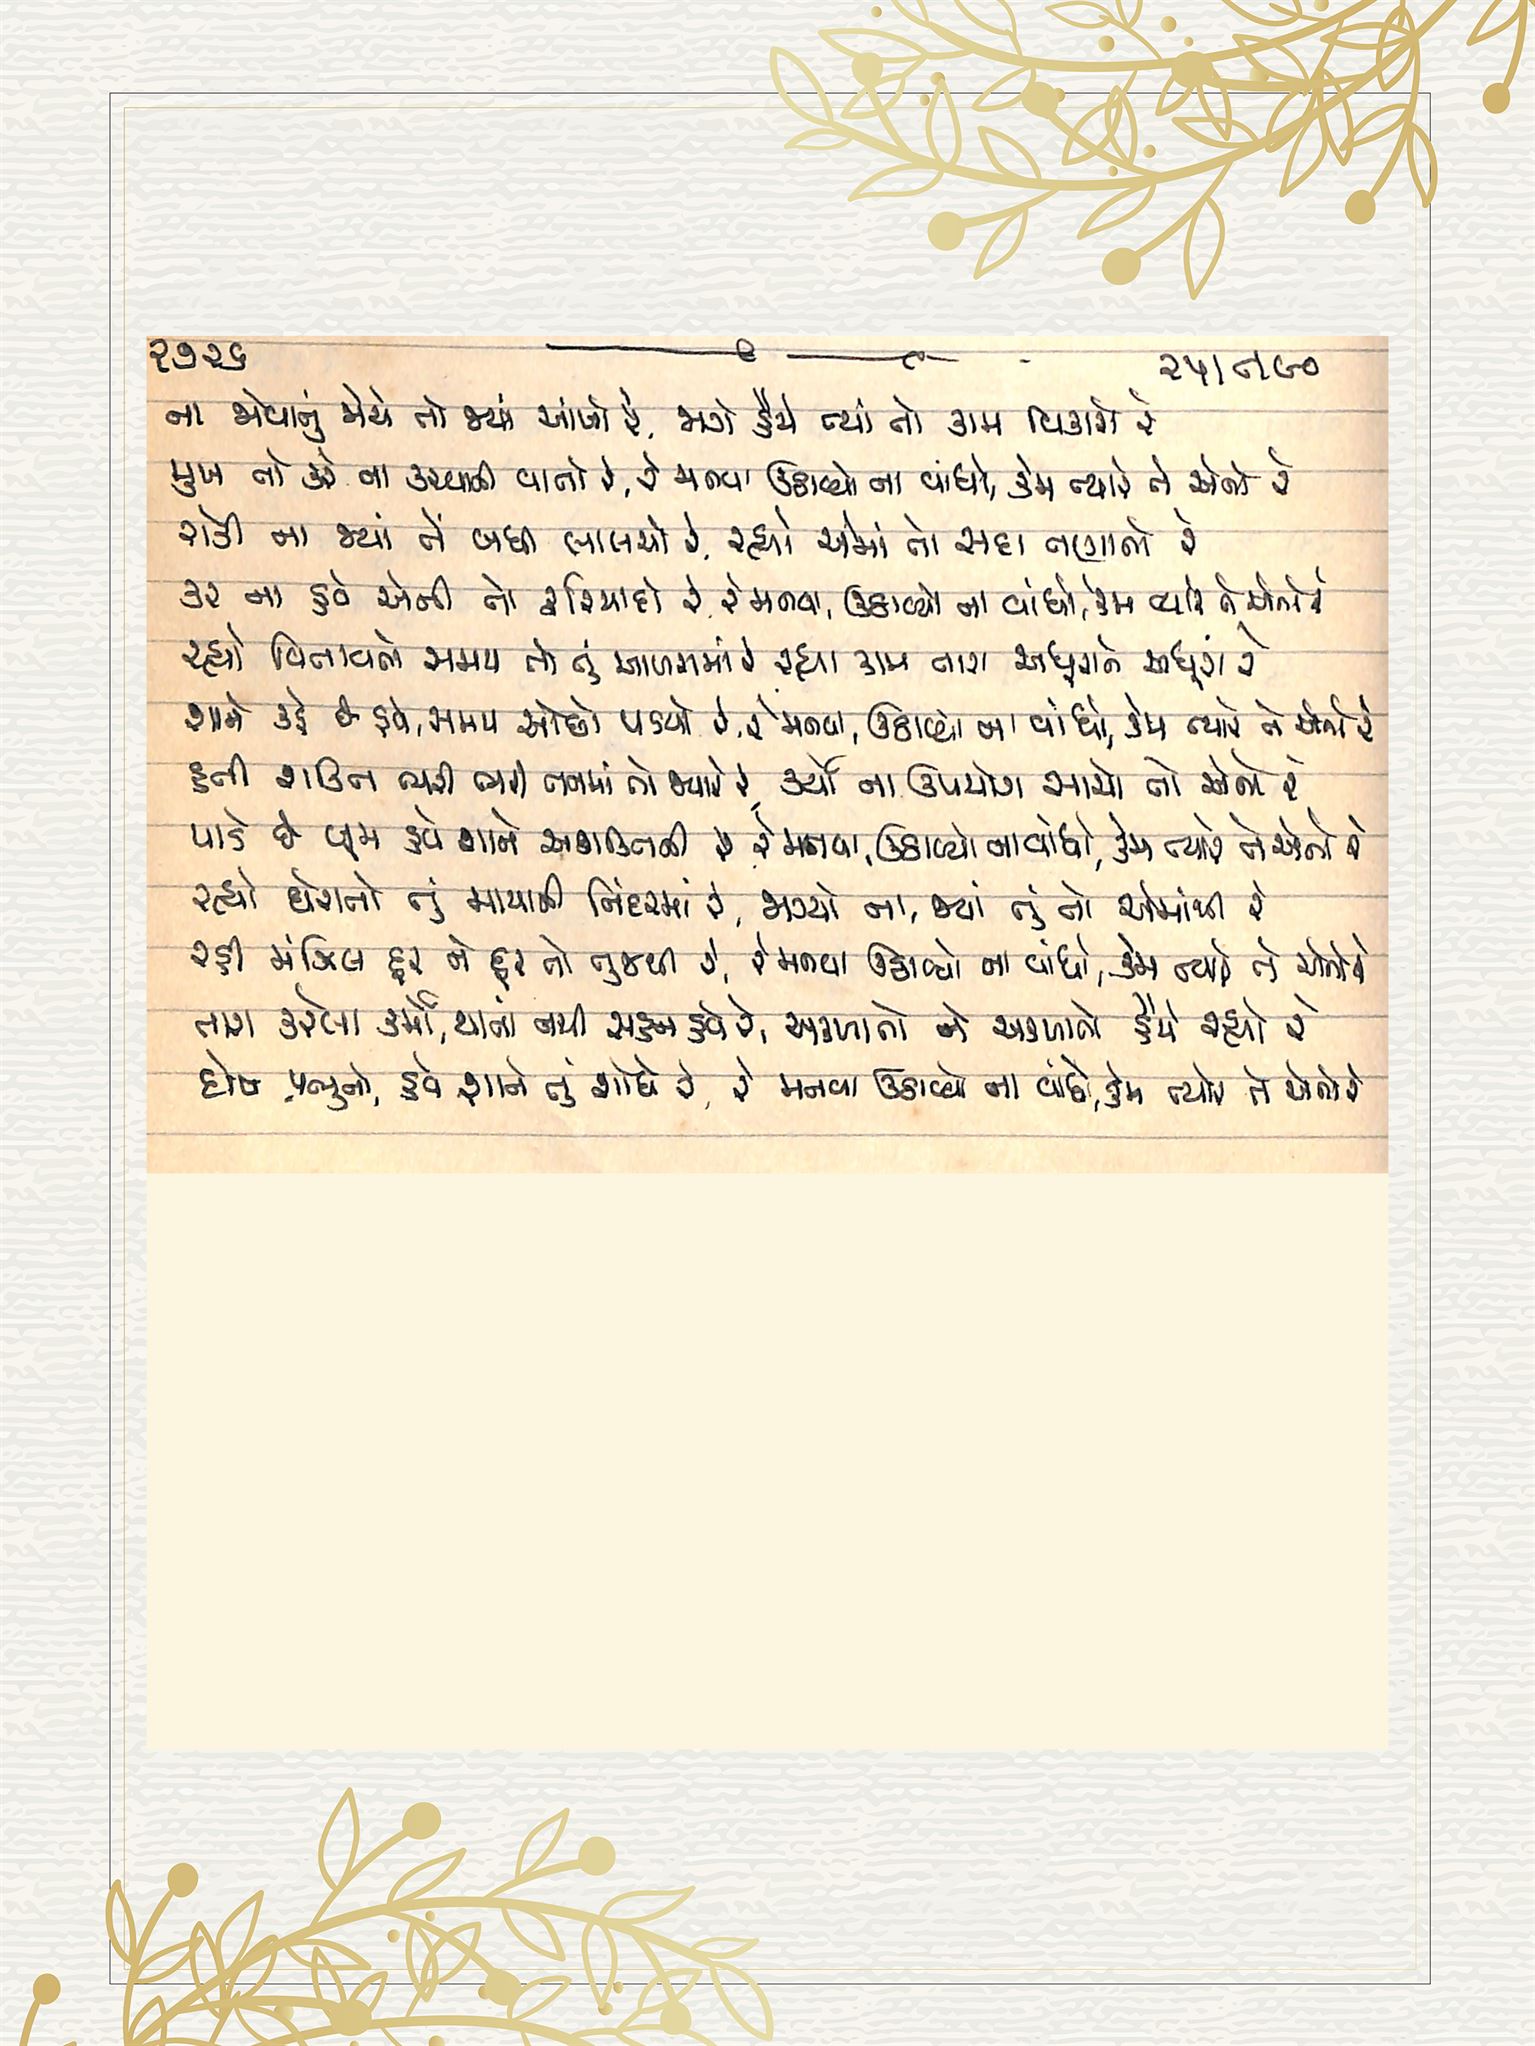 ૨૭૨૬
ના જોવાનું જોયે તો જ્યાં આંખો રે, જાગે હૈયે ત્યાં તો કામ વિકારો રે
મુખ તો કરે ના કરવાની વાતો રે, રે મનવા ઉઠાવ્યો ના વાંધો, કેમ ત્યારે તે એનો રે
રોકી ના જ્યાં તેં બધી લાલચો રે, રહ્યો એમાં તો સદા તણાતો રે
કર ના હવે એની તો ફરિયાદો રે, રે મનવા, ઉઠાવ્યો ના વાંધો, કેમ ત્યારે તે એનો રે
રહ્યો વિતાવતો સમય તો તું આળસમાં રે રહ્યા કામ તારા અધૂરાને અધૂરાં રે
શાને કહે છે હવે, સમય ઓછો પડયો રે, રે મનવા, ઉઠાવ્યો ના વાંધો, કેમ ત્યારે તે એનો રે
હતી શક્તિ ભરી ભરી તનમાં તો જ્યારે રે, કર્યો ના ઉપયોગ સાચો તો એનો રે
પાડે છે બૂમ હવે શાને અશક્તિની રે રે મનવા, ઉઠાવ્યો ના વાંધો, કેમ ત્યારે તે એનો રે
રહ્યો ઘેરાતો તું માયાની નિંદરમાં રે, જાગ્યો ના, જ્યાં તું તો એમાંથી રે
રહી મંઝિલ દૂર ને દૂર તો તુજથી રે, રે મનવા ઉઠાવ્યો ના વાંધો, કેમ ત્યારે તે એનો રે
તારા કરેલા કર્મો, થાતાં નથી સહન હવે રે, અકળાતો ને અકળાતો હૈયે રહ્યો રે
દોષ પ્રભુનો, હવે શાને તું શોધે રે, રે મનવા ઉઠાવ્યો ના વાંધો, કેમ ત્યારે તે એનો રે